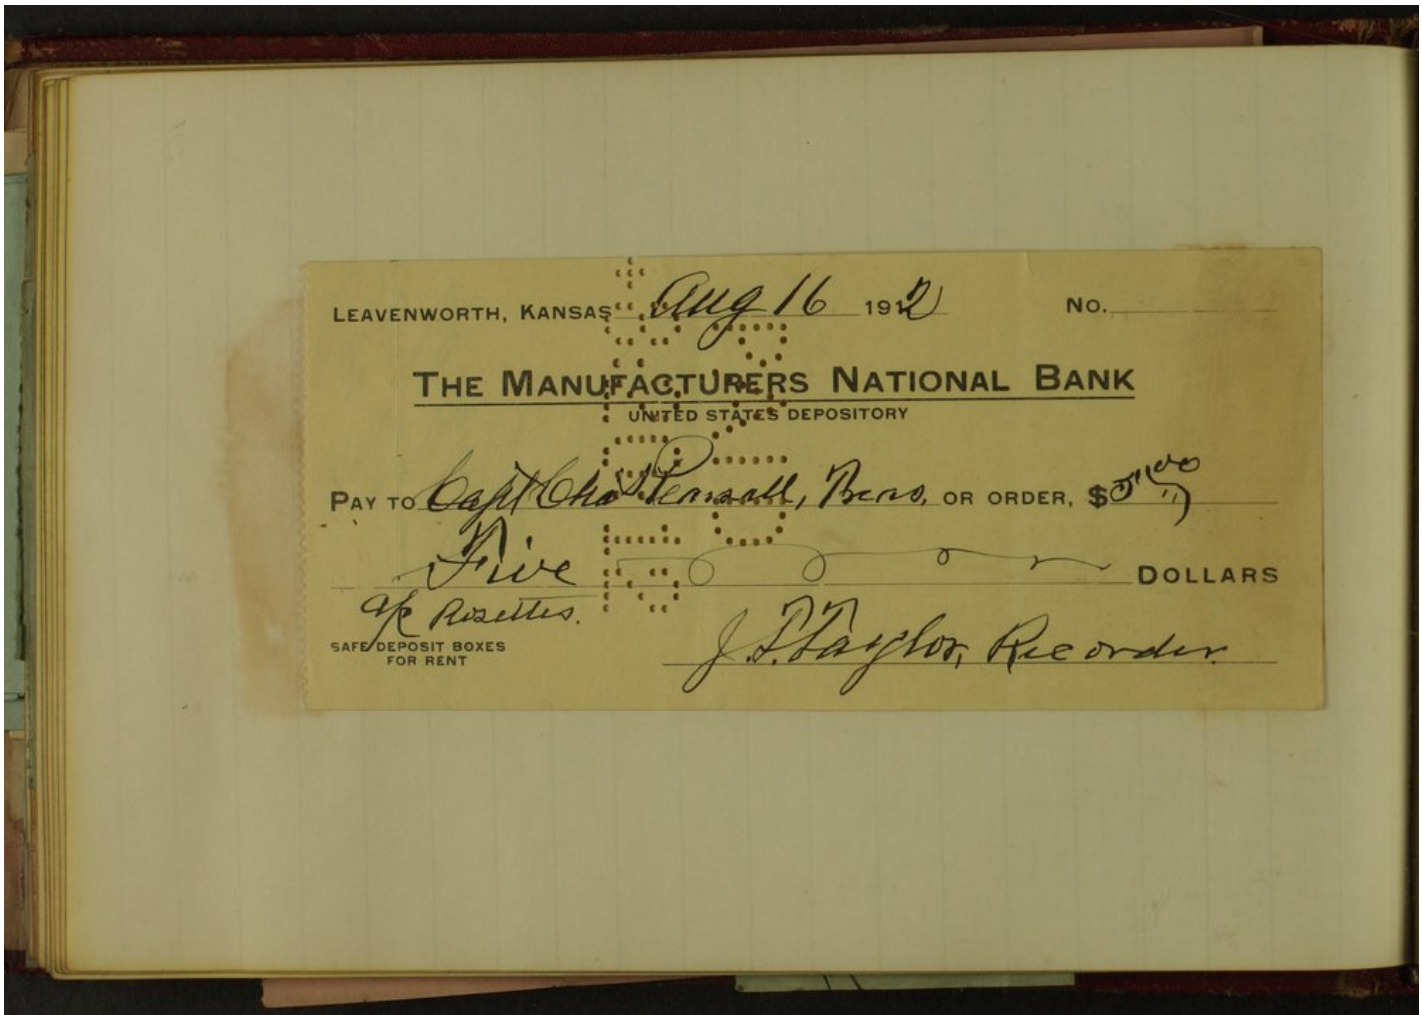 LEAVENWORTH, KANSAS Aug 16 1912 No.
THE MANUFACTURERS NATIONAL BANK
UNITED STATES DEPOSITORY
PAY TO Capt Chas Pearsall, Treas, OR ORDER, $5.00
Five DOLLARS
a/c Rosettes.
SAFE DEPOSIT BOXES
FOR RENT
J. T. Taylor, Recorder.